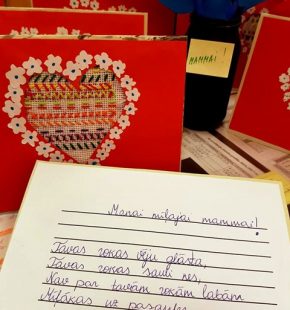 MAMMAI
Manai mīļajai mammai!
Tavas rokas vēju glāsta,
Tavas rokas sauli nes,
Nav par tavām rokām labām
Mīļākas uz pasaules